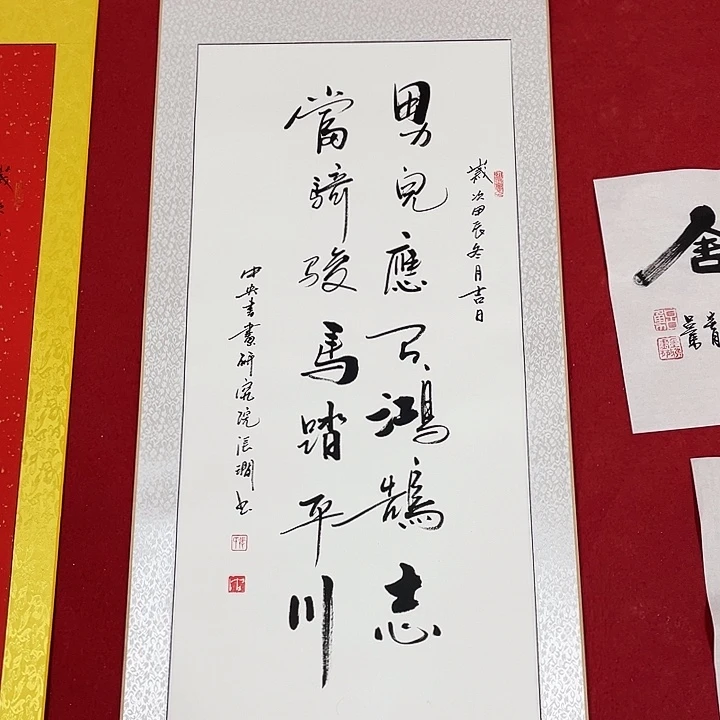 歲次甲辰冬月吉日
男兒應有鴻鵠志
當騎駿馬踏平川
中央書畫研究院張潤书
舍